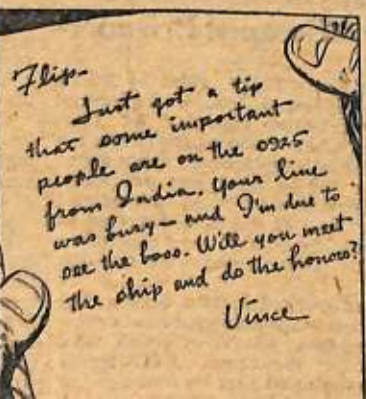 Flip-
Just got a tip
that some important
people are on the 0925
from India. Your line
was busy - and I'm due to
see the boss. Will you meet
the ship and do the honors?
Vince